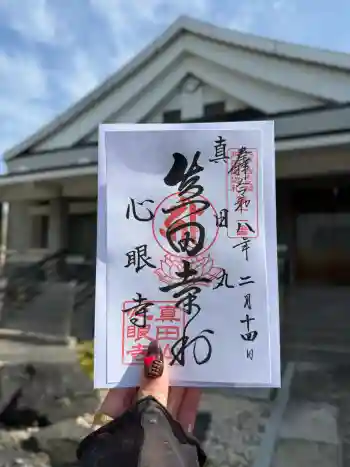 奉拝
令和八年
二月十四日
真田丸
真田幸村
心眼寺
真田山
心眼寺